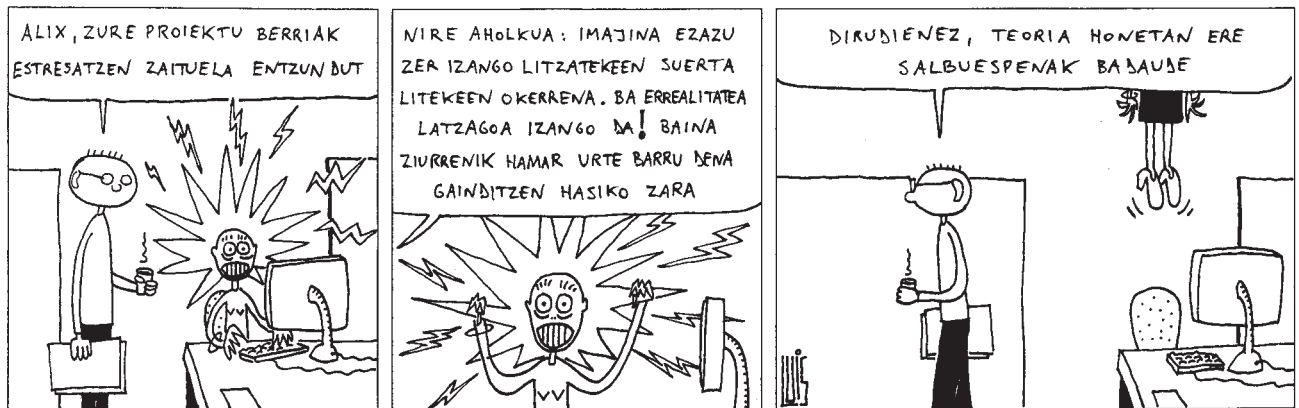 ALIX, ZURE PROIEKTU BERRIAK
ESTRESATZEN ZAITUELA ENTZUN DUT
NIRE AHOLKUA: IMAJINA EZAZU
ZER IZANGO LITZATEKEEN SUERTA
LITEKEEN OKERRENA. BA ERREALITATEA
LATZAGOA IZANGO DA! BAINA
ZIURRENIK HAMAR URTE BARRU DENA
GAINDITZEN HASIKO ZARA
DIRUDIENEZ, TEORIA HONETAN ERE
SALBUESPENAK BADAUDE